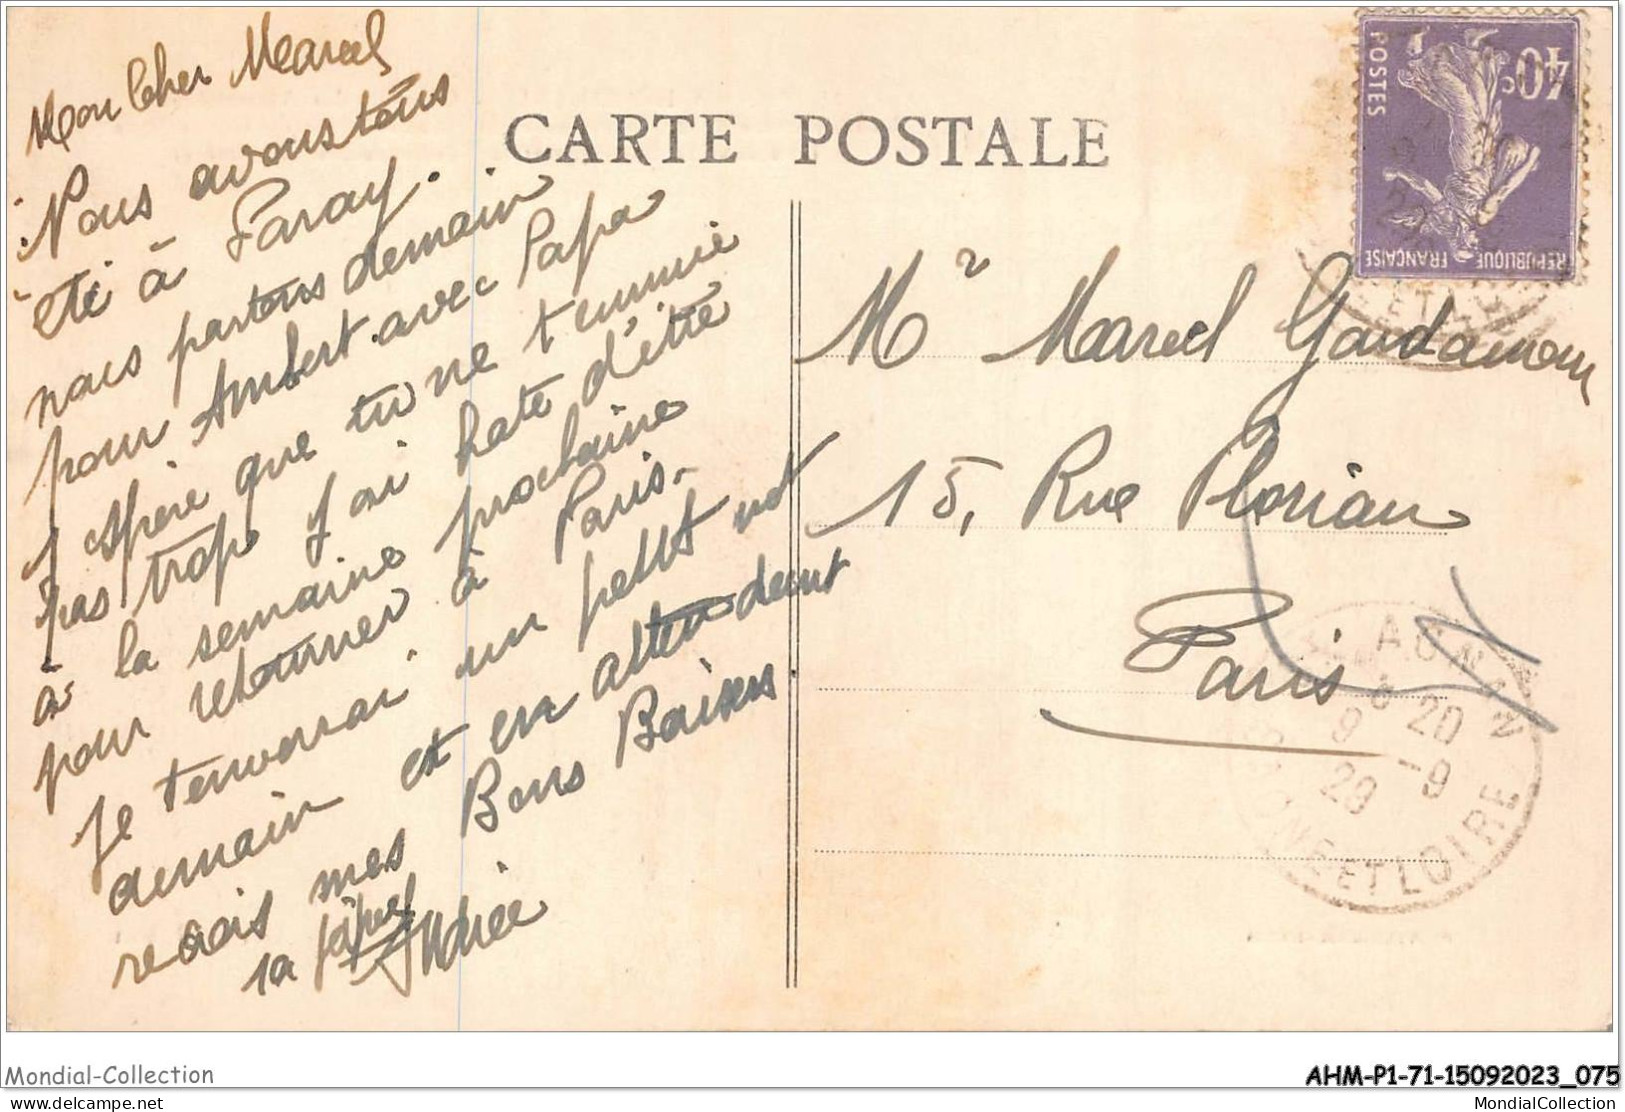 Mon Cher Marcel
Nous avons tous
été à Paray.
nous partons demain
pour Ambert avec Papa
J espere que tu ne t ennuie
pas trop j'ai hate d'être
à la semaine prochaine
pour retourner à Paris.
Je tenverrai un petit mot
demain et en attendant
recois mes Bons Baisers
ta
Andrée
CARTE POSTALE
POSTES
40c
REPUBLIQUE FRANÇAISE
Mr Marcel
15, Rue Florian
Paris
ET LOIRE
20
9 -9
29
SAONE ET LOIRE
Mondial-Collection
AHM-P1-71-15092023_075
delcampe.net
MondialCollection